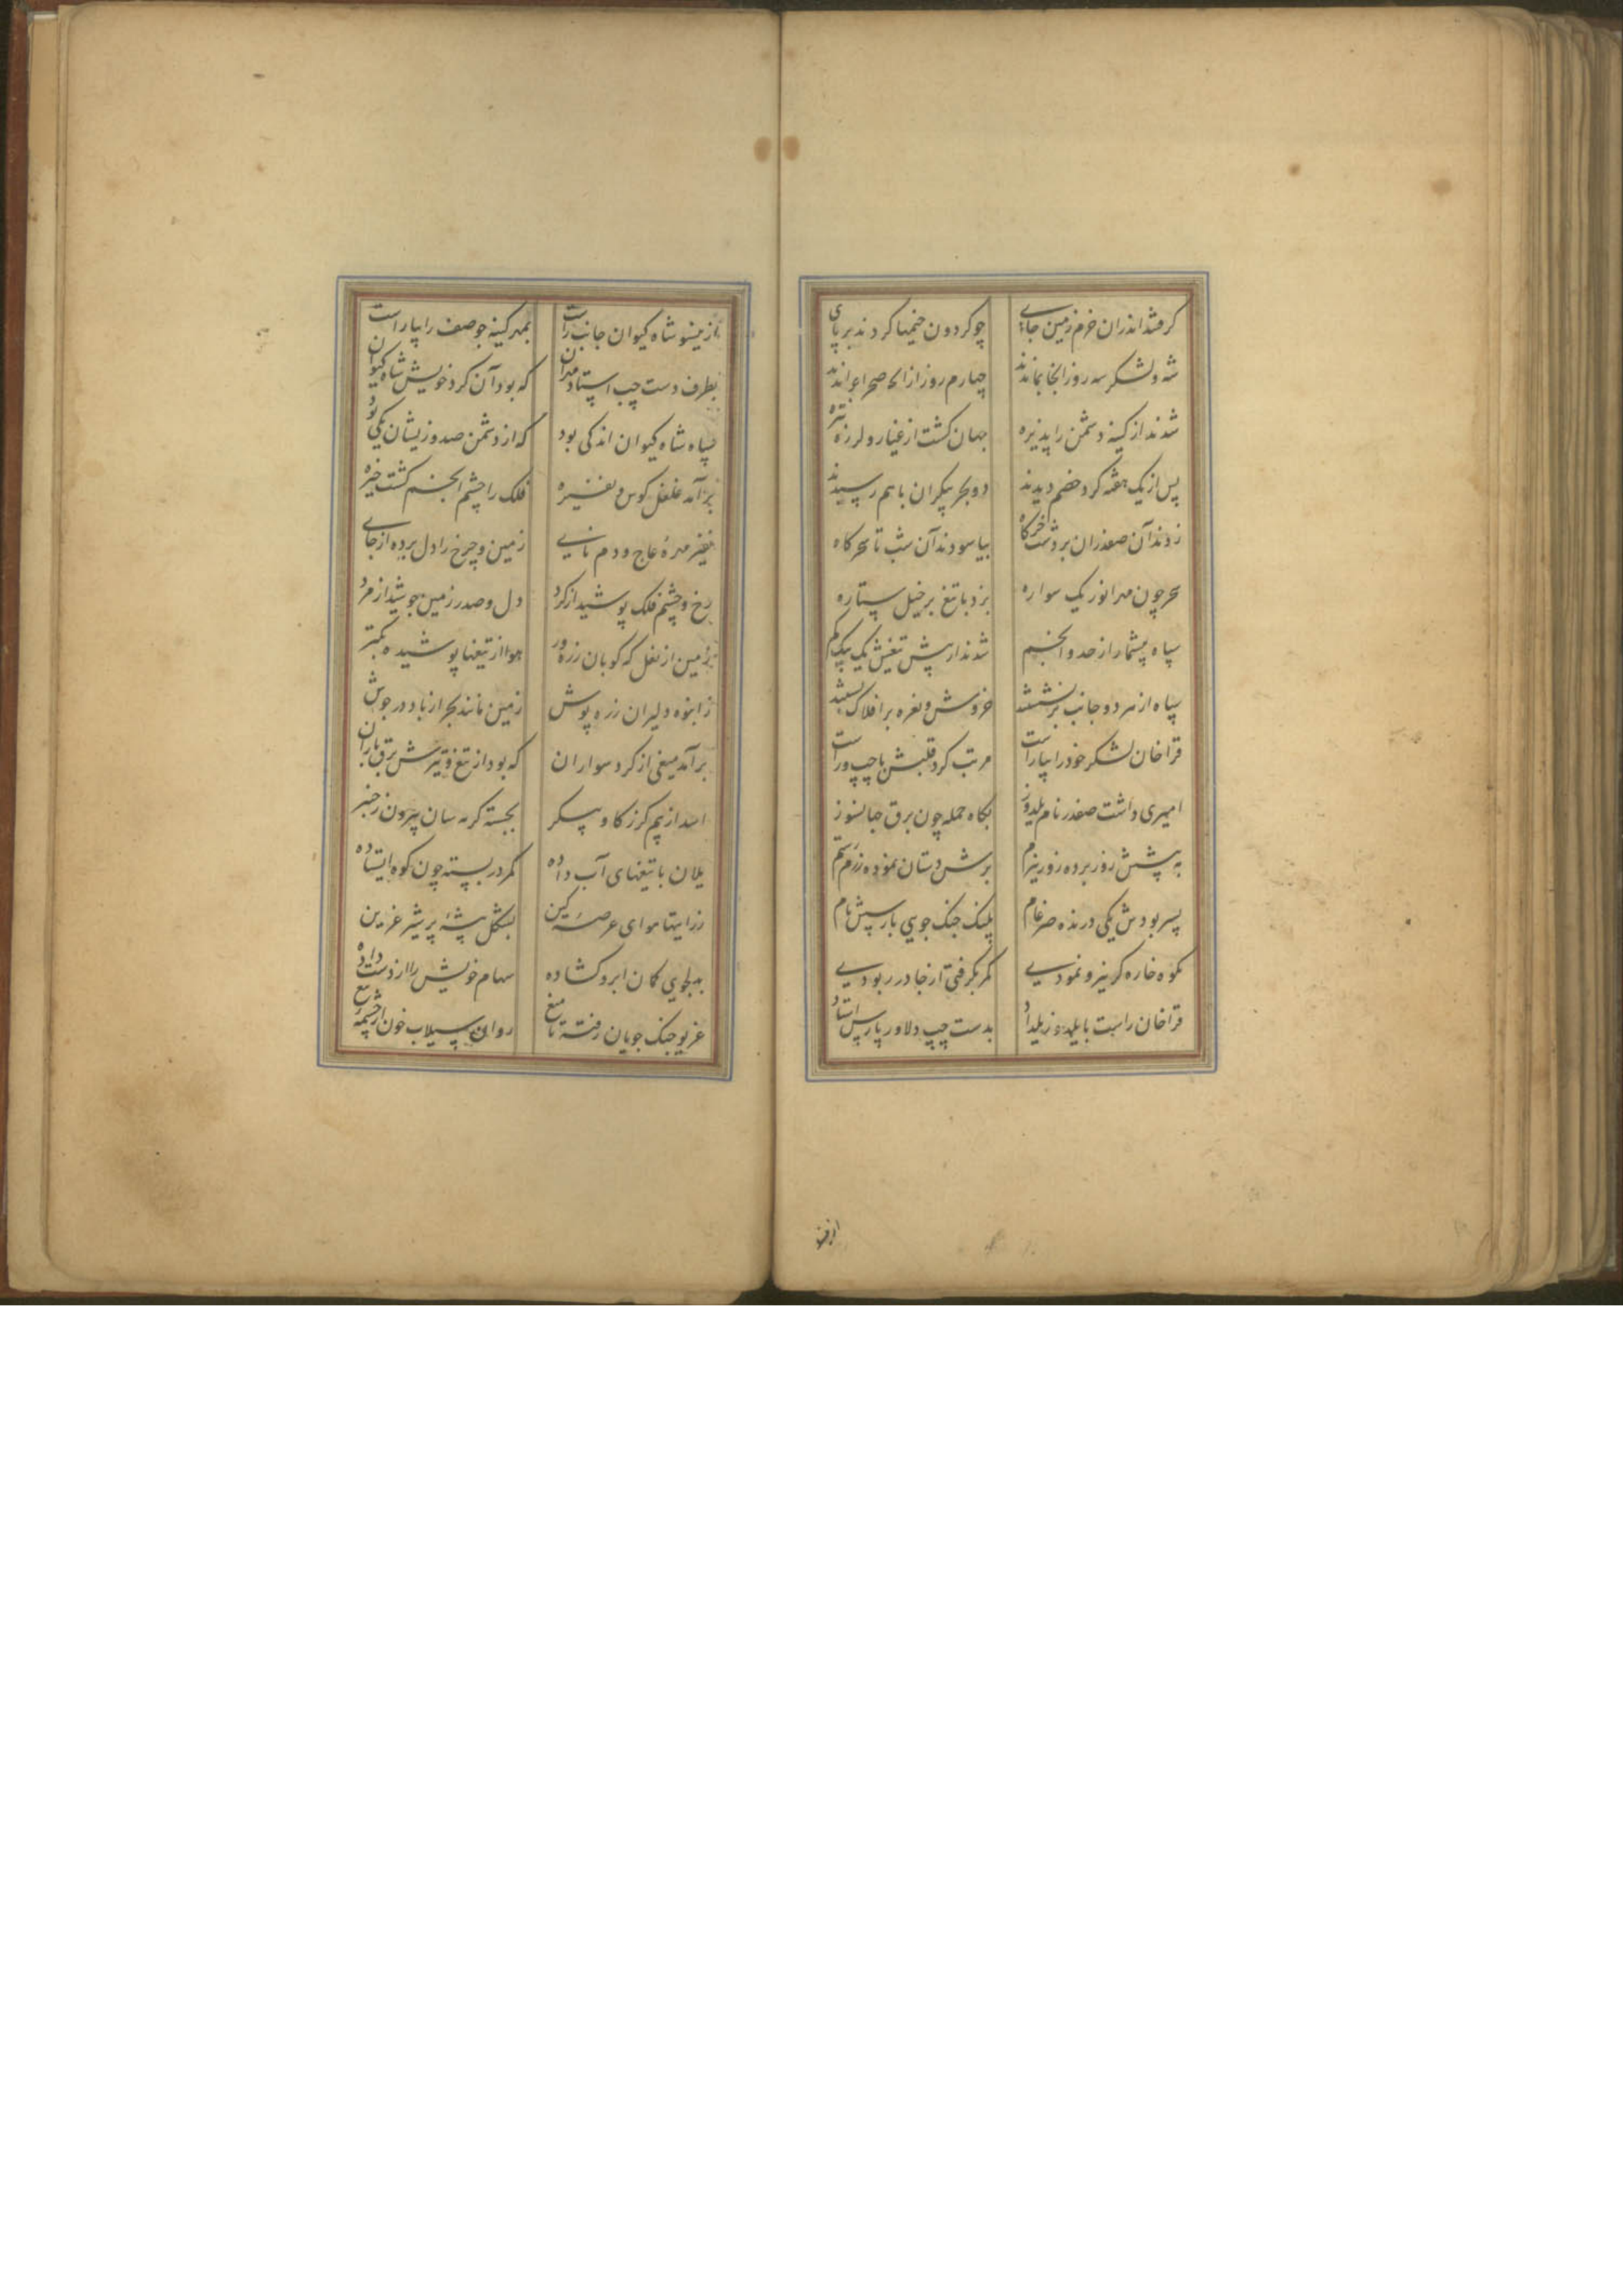 گرفتند اندران خرم زمین جای چو گردون خیمها کردند بر پای
شه و لشکر سه روز آنجا بماندند چهارم روز از آنجا صحرا براندند
شدند از کینه دشمن را پذیره جهان گشت از غبار و لرزه تیره
پس از یک هفته گرد خصم دیدند دو بحر بیکران با هم رسیدند
زدند آن صفدران بر دشت خرگاه بیاسودند آن شب تا سحرگاه
سحر چون مهر انور یک سواره بزد با تیغ بر خیل ستاره
سپاه بیشمار از حد و انجم شدند از پیش تیغش یک بیک گم
سپاه از هر دو جانب برنشستند خروش و نعره بر افلاک بستند
قراخان لشکر خود را بیاراست مرتب کرد قلبش با چپ و راست
امیری داشت صفدر نام یلدوز بگاه حمله چون برق جهانسوز
به پیشش زور برده زور نیرم برش دستان نموده رزم رستم
پسر بودش یکی درنده ضرغام پلنگ جنگ جوی بارسیش نام
بکوه خاره گر نیرو نمودی کمر بگرفتی از جا در ربودی
قراخان راست با یلدوز یل داد بدست چپ دلاور پارس استاد
ازین
ازینسو شاه کیوان جانب راست بمهر کینه جو صف را بیاراست
بطرف دست چپ استاد مهران که بود آن گرد خویش شاه کیوان
سپاه شاه کیوان اندکی بود که از دشمن صد و زیشان یکی بود
برآمد غلغل کوس و نفیره فلک را چشم انجم گشت خیره
نفیر مهره عاج و دم نای زمین و چرخ را دل برده از جای
رخ و چشم فلک پوشید از گرد دل و صدر زمین جوشید از مرد
زمین از نعل که کوبان زره ور هوا از تیغها پوشیده بکتر
ز انبوه دلیران زره پوش زمین مانند بحر از باد در جوش
برآمد میغی از گرد سواران که بود از تیغ و تیرش برق باران
اسد از بیم گرز گاو پیکر بجسته گربه سان بیرون ز چنبر
یلان با تیغهای آب داده کمر در بسته چون کوه ایستاده
ز رایتها هوای عرصه کین بشکل بیشه پر شیر غرین
به دلجوی کمان ابرو گشاده سهام خویش را از دست داده
غریو جنگ جویان رفته تا میغ روان سیلاب خون از چشمه تیغ